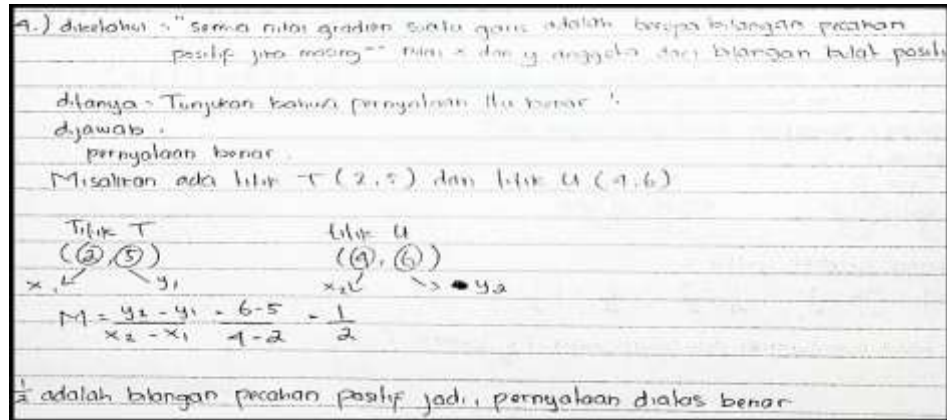 4.) diketahui : "semua nilai gradien suatu garis adalah berupa bilangan pecahan
positif jika masing-- nilai x dan y anggota dari bilangan bulat positi
ditanya : Tunjukan bahwa pernyataan itu benar !
dijawab :
pernyataan benar.
Misalkan ada titik T (2,5) dan titik U (4,6)
Titik T titik U
(2,5) (4,6)
x1 y1 x2 y2
M = y2 - y1 / x2 - x1 = 6-5 / 4-2 = 1 / 2
1/2 adalah bilangan pecahan positif jadi, pernyataan diatas benar